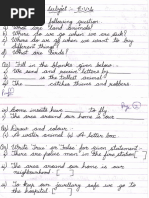 Subject :- E.V.S
following question.
What are land animals?
b) Where do we go when we are sick?
c) Where do we go when we want to buy
different things?
d) What are birds?
Fill in the blanks given below.
We send and receive letters by
is the tallest animal.
The catches thieves and robbers
Some insects have to fly.
The area around our home is our
Draw and colour.
a) A water animal b) A letter box
Write True or False for statement.
There are police men in the fire station [ ]
The area around our home is our
neighbourhood [ ]
To keep our jewellery safe we go to
the hospital [ ]